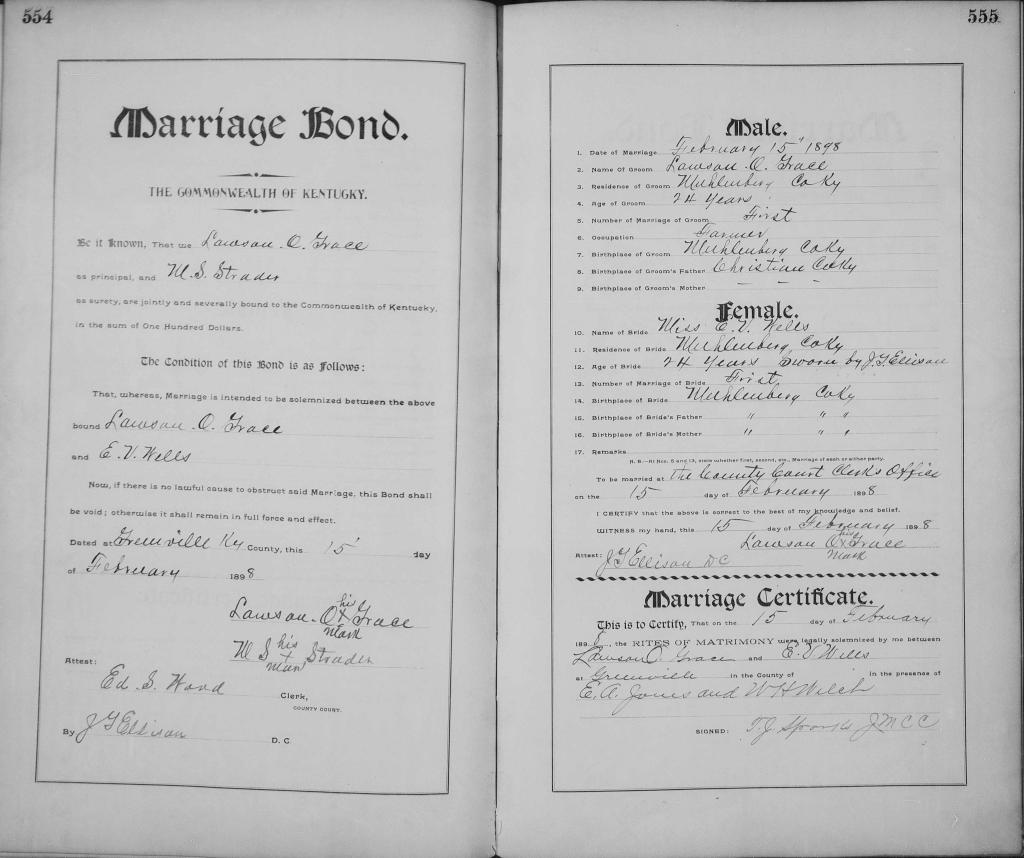 554
Marriage Bond.
THE COMMONWEALTH OF KENTUCKY.
Be it Known, That we Lawson. O. Grace
as principal, and W. S. Strader
as surety, are jointly and severally bound to the Commonwealth of Kentucky,
in the sum of One Hundred Dollars.
The Condition of this Bond is as Follows:
That, whereas, Marriage is intended to be solemnized between the above
bound Lawson. O. Grace
and E. V. Wells
Now, if there is no lawful cause to obstruct said Marriage, this Bond shall
be void; otherwise it shall remain in full force and effect.
Dated at Greenville Ky County, this 15 day
of February 1898
his
Lawson. O x Grace
mark
his
W S x Strader
mark
Attest:
Ed. S. Wood Clerk,
COUNTY COURT.
By J G Ellison D. C.
555
Male.
1. Date of Marriage February 15" 1898
2. Name Of Groom Lawson. O. Grace
3. Residence of Groom Muhlenberg Co Ky
4. Age of Groom 24 Years
5. Number of Marriage of Groom First
6. Occupation Farmer
7. Birthplace of Groom Muhlenberg Co Ky
8. Birthplace of Groom's Father Christian Co Ky
9. Birthplace of Groom's Mother — — —
Female.
10. Name of Bride Miss E. V. Wells
11. Residence of Bride Muhlenberg Co Ky
12. Age of Bride 24 Years Sworn by J. G Ellison
13. Number of Marriage of Bride First
14. Birthplace of Bride Muhlenberg Co Ky
15. Birthplace of Bride's Father " " "
16. Birthplace of Bride's Mother " " "
17. Remarks
N. B.—At Nos. 5 and 13, state whether first, second, etc., Marriage of each or either party.
To be married at the County Court Clerks Office
on the 15 day of February 1898
I CERTIFY that the above is correct to the best of my knowledge and belief.
WITNESS my hand, this 15 day of February 1898
his
Lawson O x Grace
mark
Attest: J G Ellison DC
Marriage Certificate.
This is to Certify, That on the 15 day of February
1898, the RITES OF MATRIMONY were legally solemnized by me between
Lawson O. Grace and E. V Wells
at Greenville in the County of in the presence of
E. A. Jones and W H Welch
SIGNED: T. J. Sparks J M C C